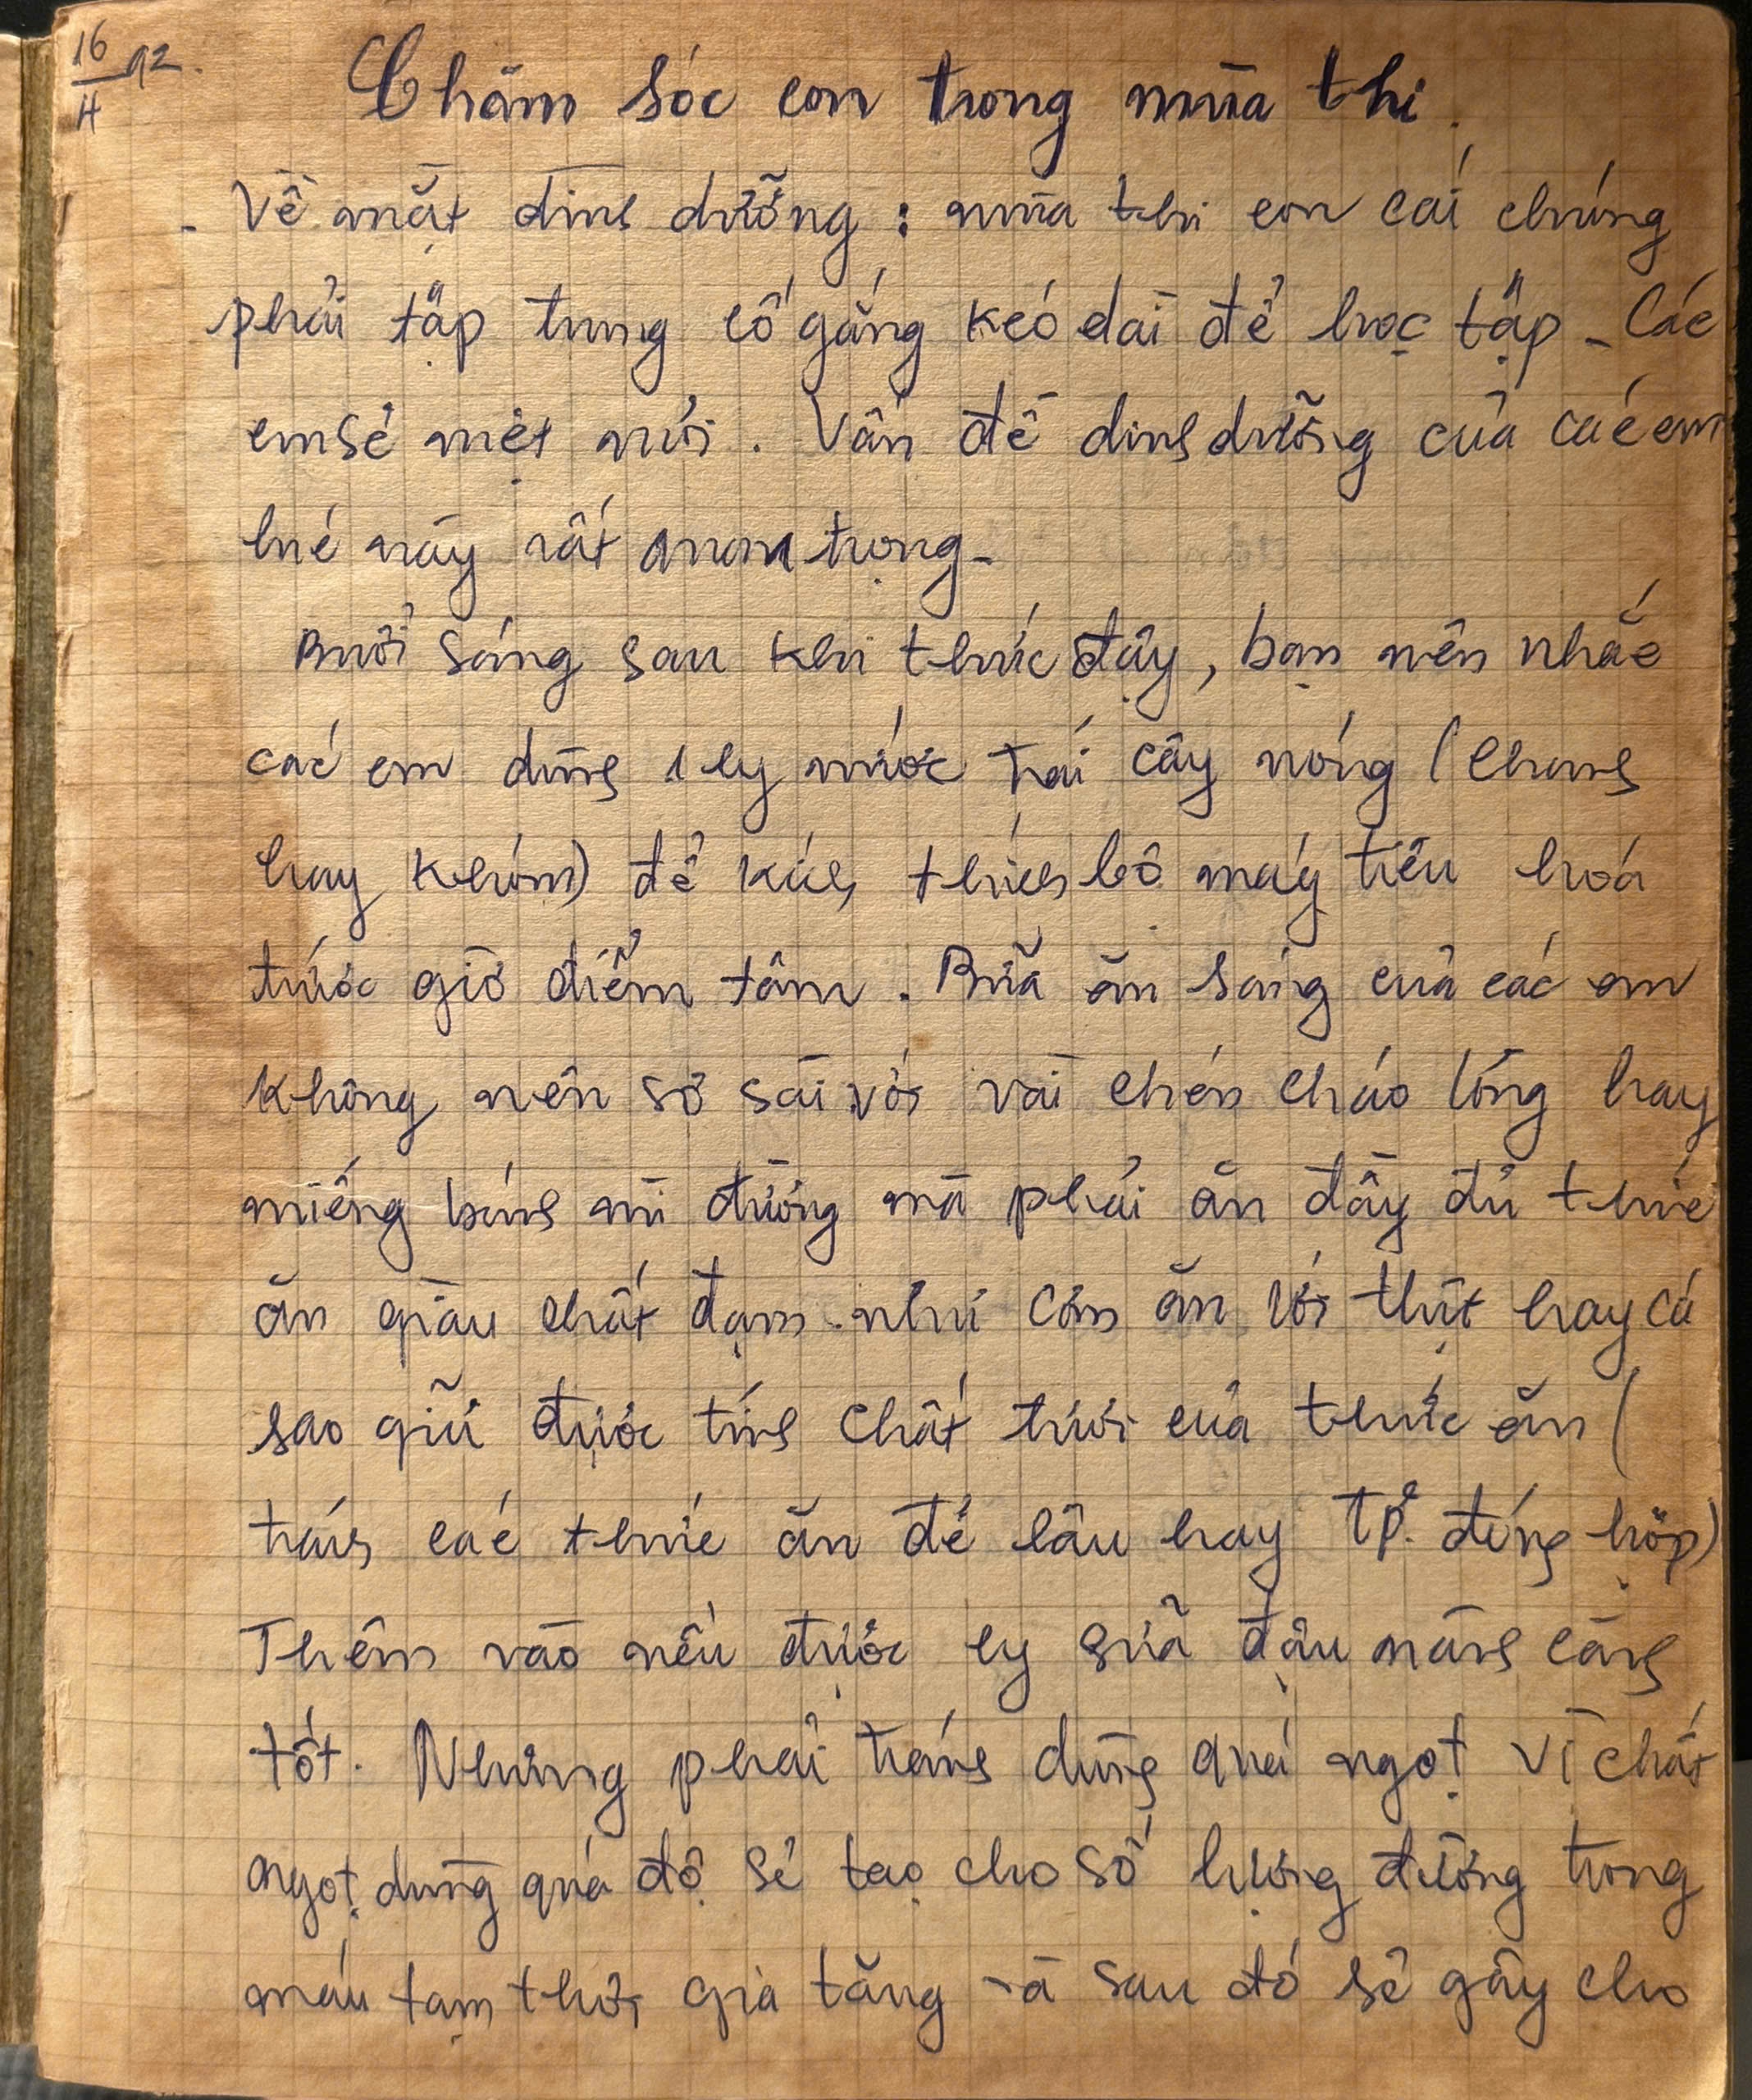 16/4 92.
Chăm sóc con trong mùa thi.
- Về mặt dinh dưỡng : mùa thi con cái chúng
phải tập trung cố gắng kéo dài để học tập - Các
em sẽ mệt mỏi. Vấn đề dinh dưỡng của các em
lúc này rất quan trọng -
Buổi sáng sau khi thức dậy, bạn nên nhắc
các em dùng 1 ly nước trái cây nóng (chanh
hay khóm) để kích thích bộ máy tiêu hoá
trước giờ điểm tâm. Bữa ăn sáng của các em
không nên sơ sài với vài chén cháo lỏng hay
miếng bánh mì đường mà phải ăn đầy đủ thức
ăn giàu chất đạm như cơm ăn với thịt hay cá
sao giữ được tính chất tươi của thức ăn (
tránh các thức ăn để lâu hay TP. đóng hộp)
Thêm vào nếu được ly sữa đậu nành càng
tốt. Nhưng phải tránh dùng quá ngọt vì chất
ngọt dùng quá độ sẽ tạo cho số lượng đường trong
máu tạm thời gia tăng và sau đó sẽ gây cho